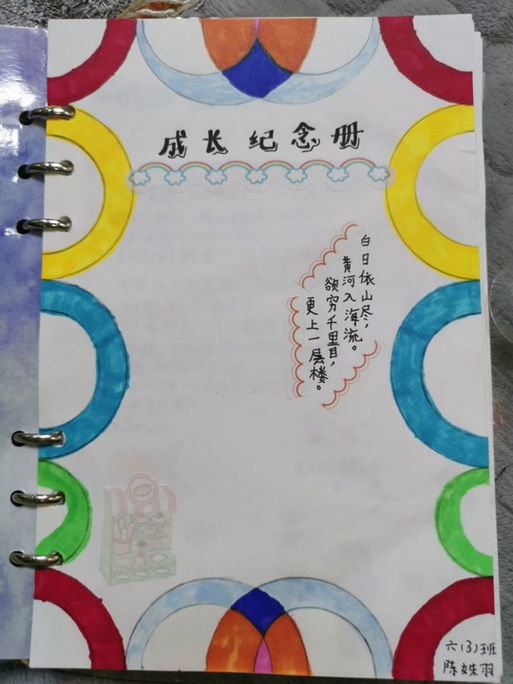 成长纪念册
白日依山尽，
黄河入海流。
欲穷千里目，
更上一层楼。
六(3)班
陈姝羽